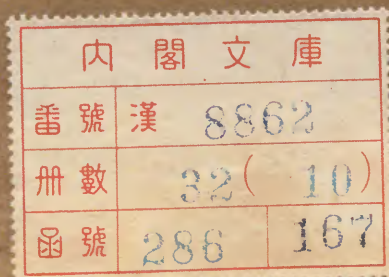 內閣文庫
番號 漢 8862
冊數 32(10)
函號 286 167